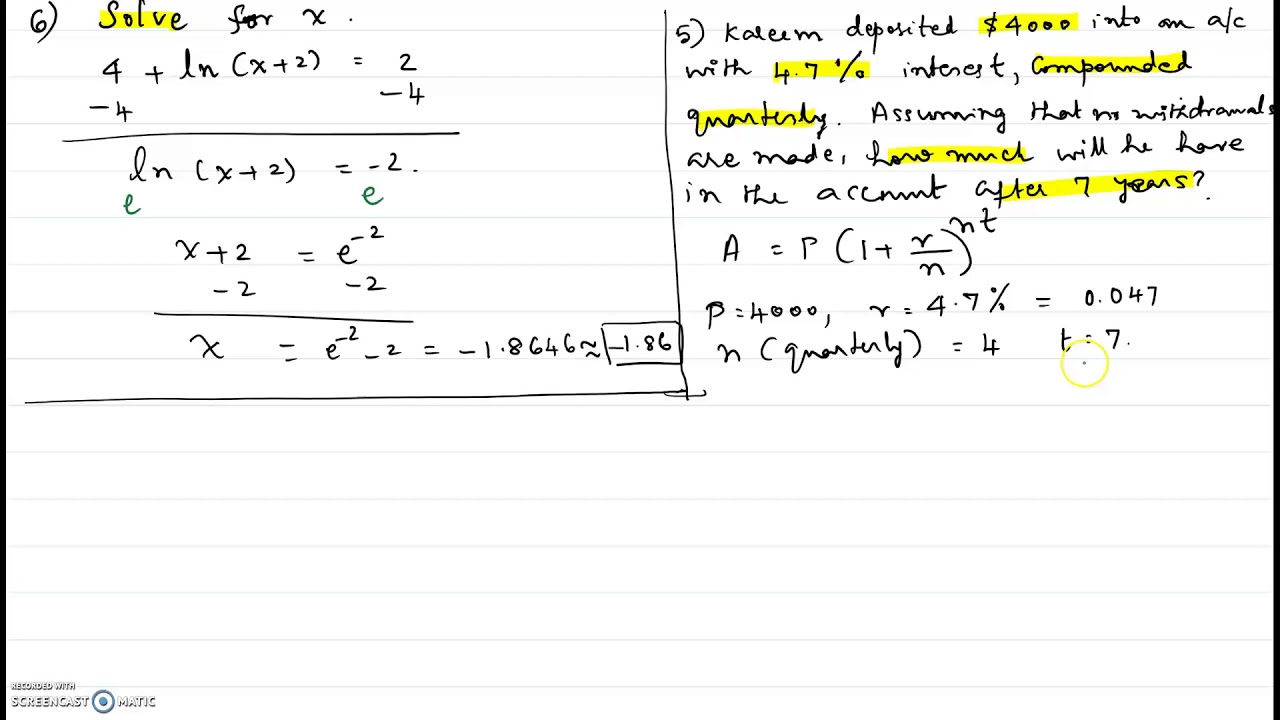 6) Solve for x.
4 + ln (x+2) = 2
-4 -4
ln (x+2) = -2.
e e
x+2 = e^-2
-2 -2
x = e^-2 -2 = -1.8646 ≈ -1.86
5) Kareem deposited $4000 into an a/c
with 4.7% interest, compounded
quarterly. Assuming that no withdrawals
are made, how much will he have
in the account after 7 years?
A = P (1 + r/n)^nt
P = 4000, r = 4.7% = 0.047
n (quarterly) = 4 t = 7.
RECORDED WITH
SCREENCAST MATIC